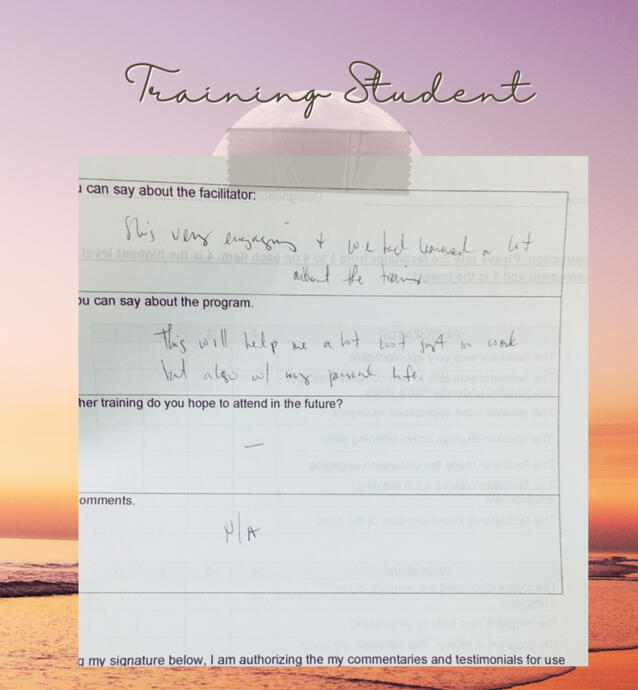 Training Student
can say about the facilitator:
She's very engaging & we had learned a lot
about the
ou can say about the program.
This will help me a lot not just in work
but also w/ my personal life.
her training do you hope to attend in the future?
—
omments.
N/A
g my signature below, I am authorizing the my commentaries and testimonials for use